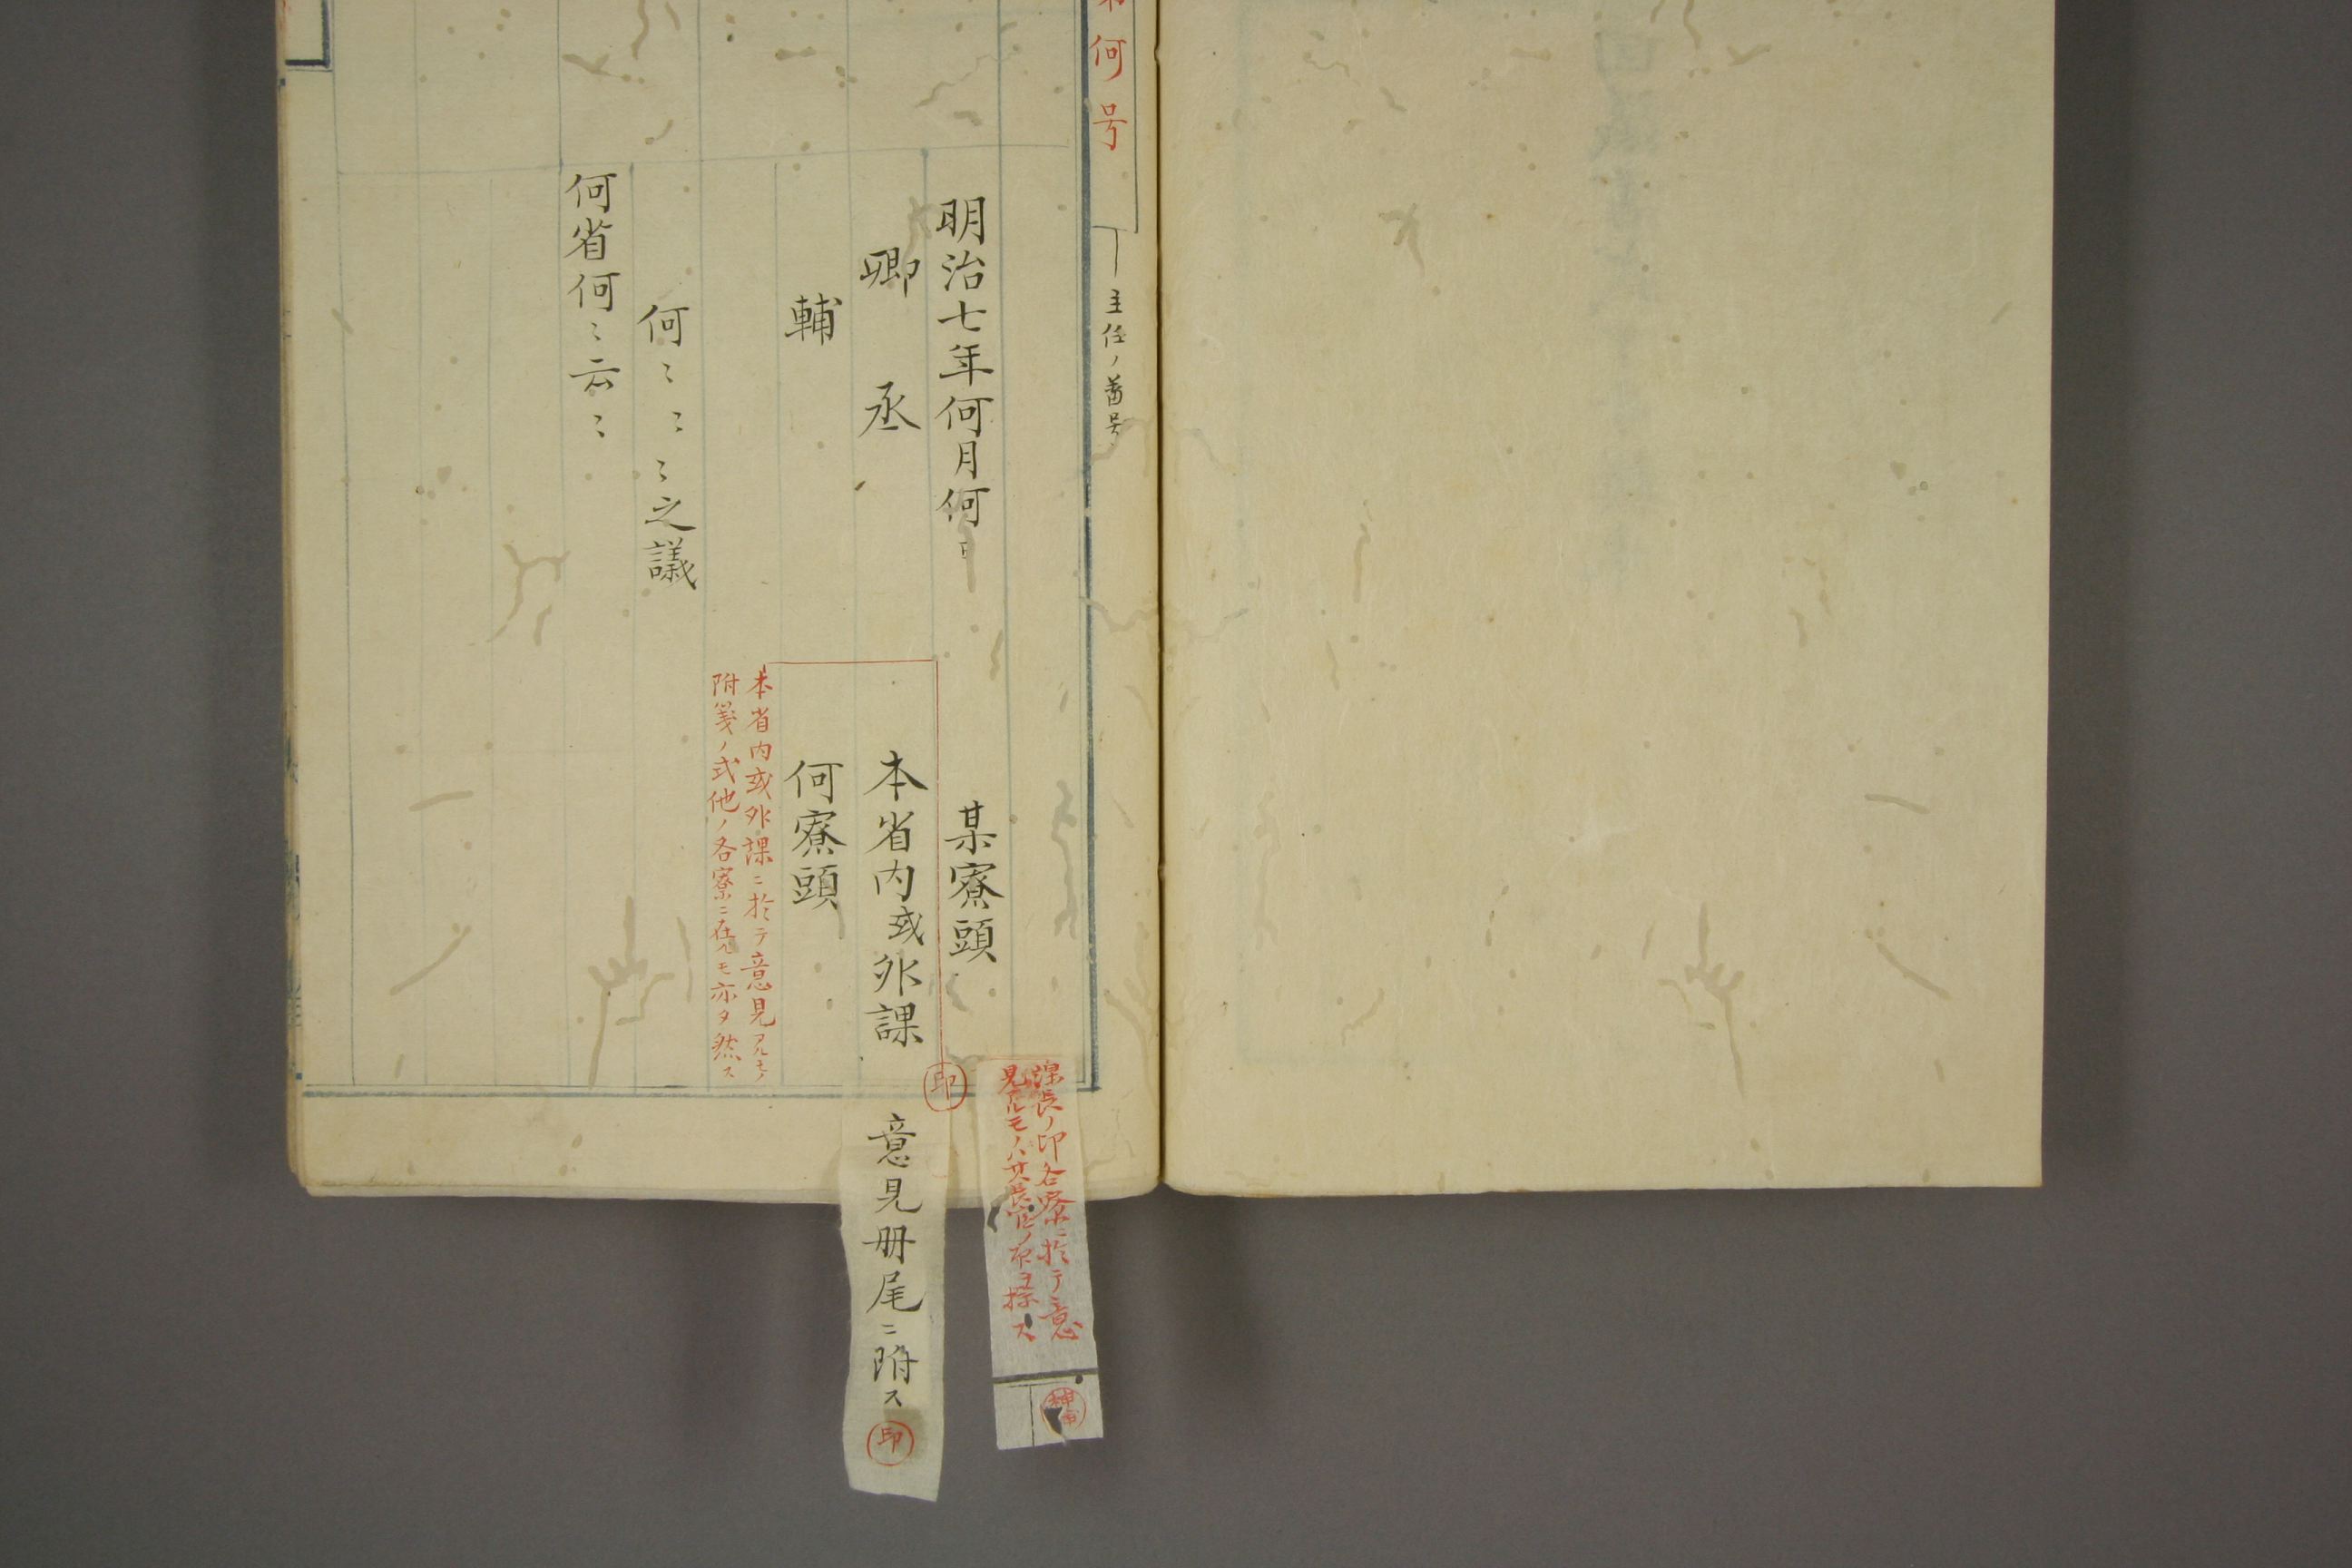 何号
主任ノ番号
明治七年何月何日
某寮頭
卿　丞
本省内或外課
輔
何寮頭
本省内或外課ニ於テ意見アルモノ
附箋ノ式他ノ各寮ニ在ルモ亦タ然ス
何〻〻〻之議
何省何〻云〻
課長ノ印各寮ニ於テ意
見アルモノハ其長官ノ印ヲ捺ス
神田
印
意見册尾ニ附ス
印